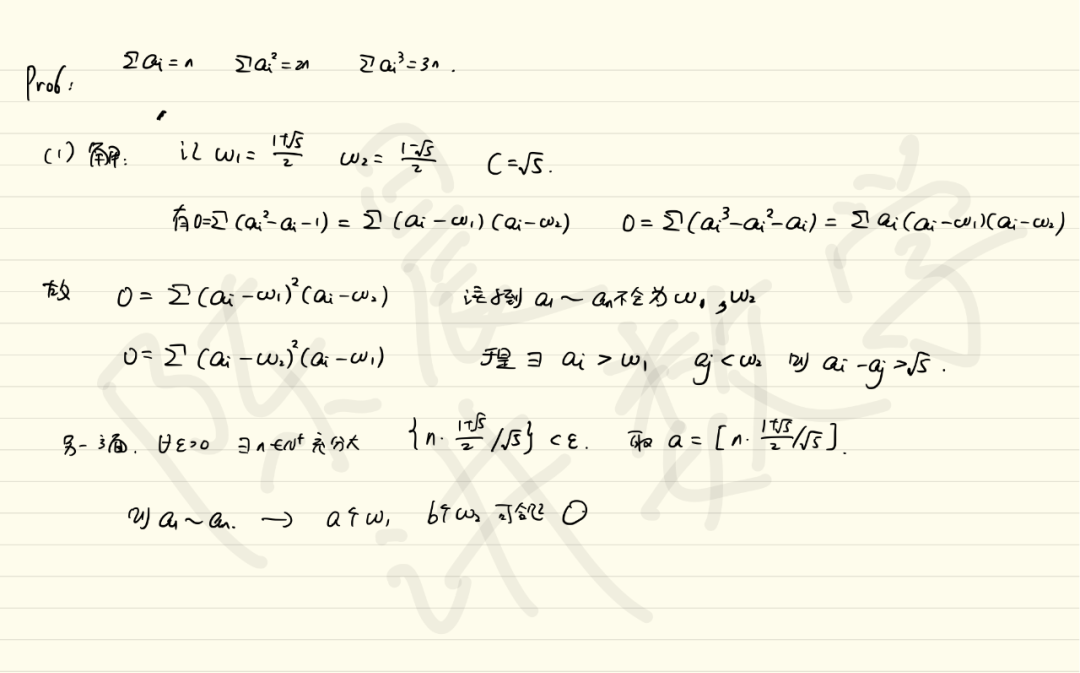 Prof: Σai=n Σai²=2n Σai³=3n.
(1) 解: 记 ω₁=(1+√5)/2 ω₂=(1-√5)/2 C=√5.
有0=Σ(ai²-ai-1)=Σ(ai-ω₁)(ai-ω₂) 0=Σ(ai³-ai²-ai)=Σai(ai-ω₁)(ai-ω₂)
故 0=Σ(ai-ω₁)²(ai-ω₂) 注意到 a₁~an不全为ω₁,ω₂
0=Σ(ai-ω₂)²(ai-ω₁) 于是∃ ai>ω₁ aj<ω₂ 则 ai-aj>√5.
另一方面. ∀ε>0 ∃n∈N⁺充分大 {n·(1+√5)/2/√5}<ε. 取 a=[n·(1+√5)/2/√5].
则a₁~an. → a个ω₁ b个ω₂